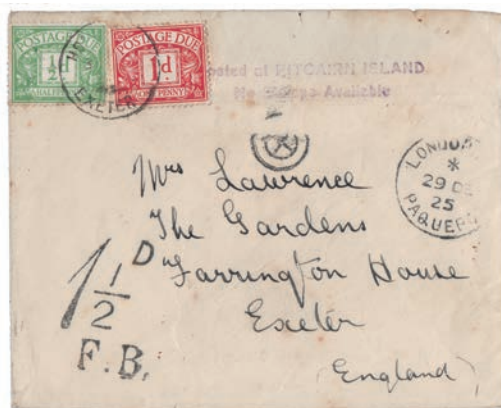 POSTAGE DUE
½D
HALFPENNY
POSTAGE DUE
1D
ONE PENNY
EXETER
Posted at PITCAIRN ISLAND
No Stamps Available
LONDON
*
29 DE
25
PAQUEBO
Mrs Lawrence
The Gardens
Farrington House
Exeter
(England)
1½D
F.B.